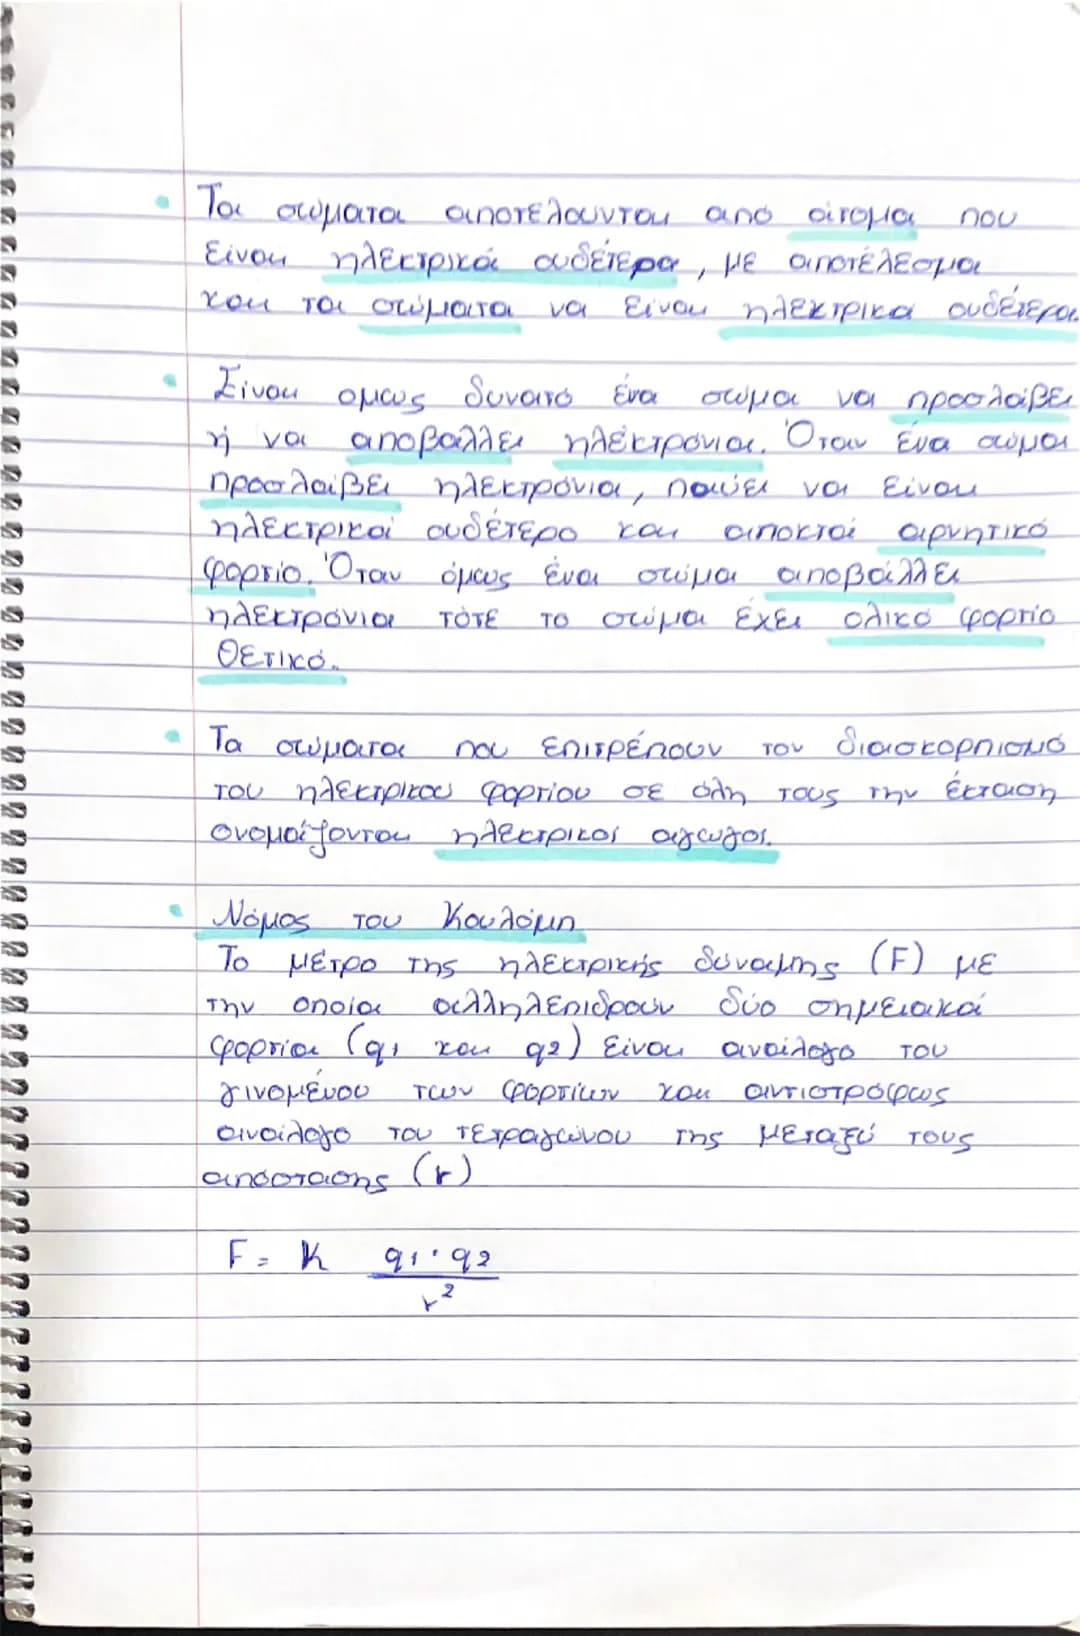 Τα σώματα αποτελούνται από άτομα που
είναι ηλεκτρικά ουδέτερα, με αποτέλεσμα
και τα σώματα να είναι ηλεκτρικά ουδέτερα.
Είναι ομως δυνατό ένα σώμα να προσλάβει
ή να αποβάλλει ηλεκτρόνια. Όταν ένα σώμα
προσλάβει ηλεκτρόνια, παύει να είναι
ηλεκτρικά ουδέτερο και αποκτά αρνητικό
φορτίο. Όταν όμως ένα σώμα αποβάλλει
ηλεκτρόνια τότε το σώμα έχει ολικό φορτίο
θετικό.
Τα σώματα που επιτρέπουν τον διασκορπισμό
του ηλεκτρικού φορτίου σε όλη τους την έκταση
ονομάζονται ηλεκτρικοί αγωγοί.
Νόμος του Κουλόμπ
Το μέτρο της ηλεκτρικής δύναμης (F) με
την οποία αλληλεπιδρούν δύο σημειακά
φορτία (q1 και q2) είναι ανάλογο του
γινομένου των φορτίων και αντιστρόφως
ανάλογο του τετραγώνου της μεταξύ τους
απόστασης (r)
F = K q1·q2
r²